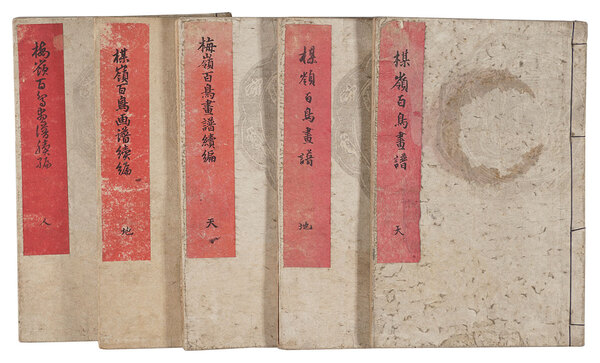 楳嶺百鳥畫譜
天
楳嶺百鳥畫譜
地
梅嶺百鳥畫譜續編
天
楳嶺百鳥画譜續編
地
梅嶺百鳥画譜續編
人